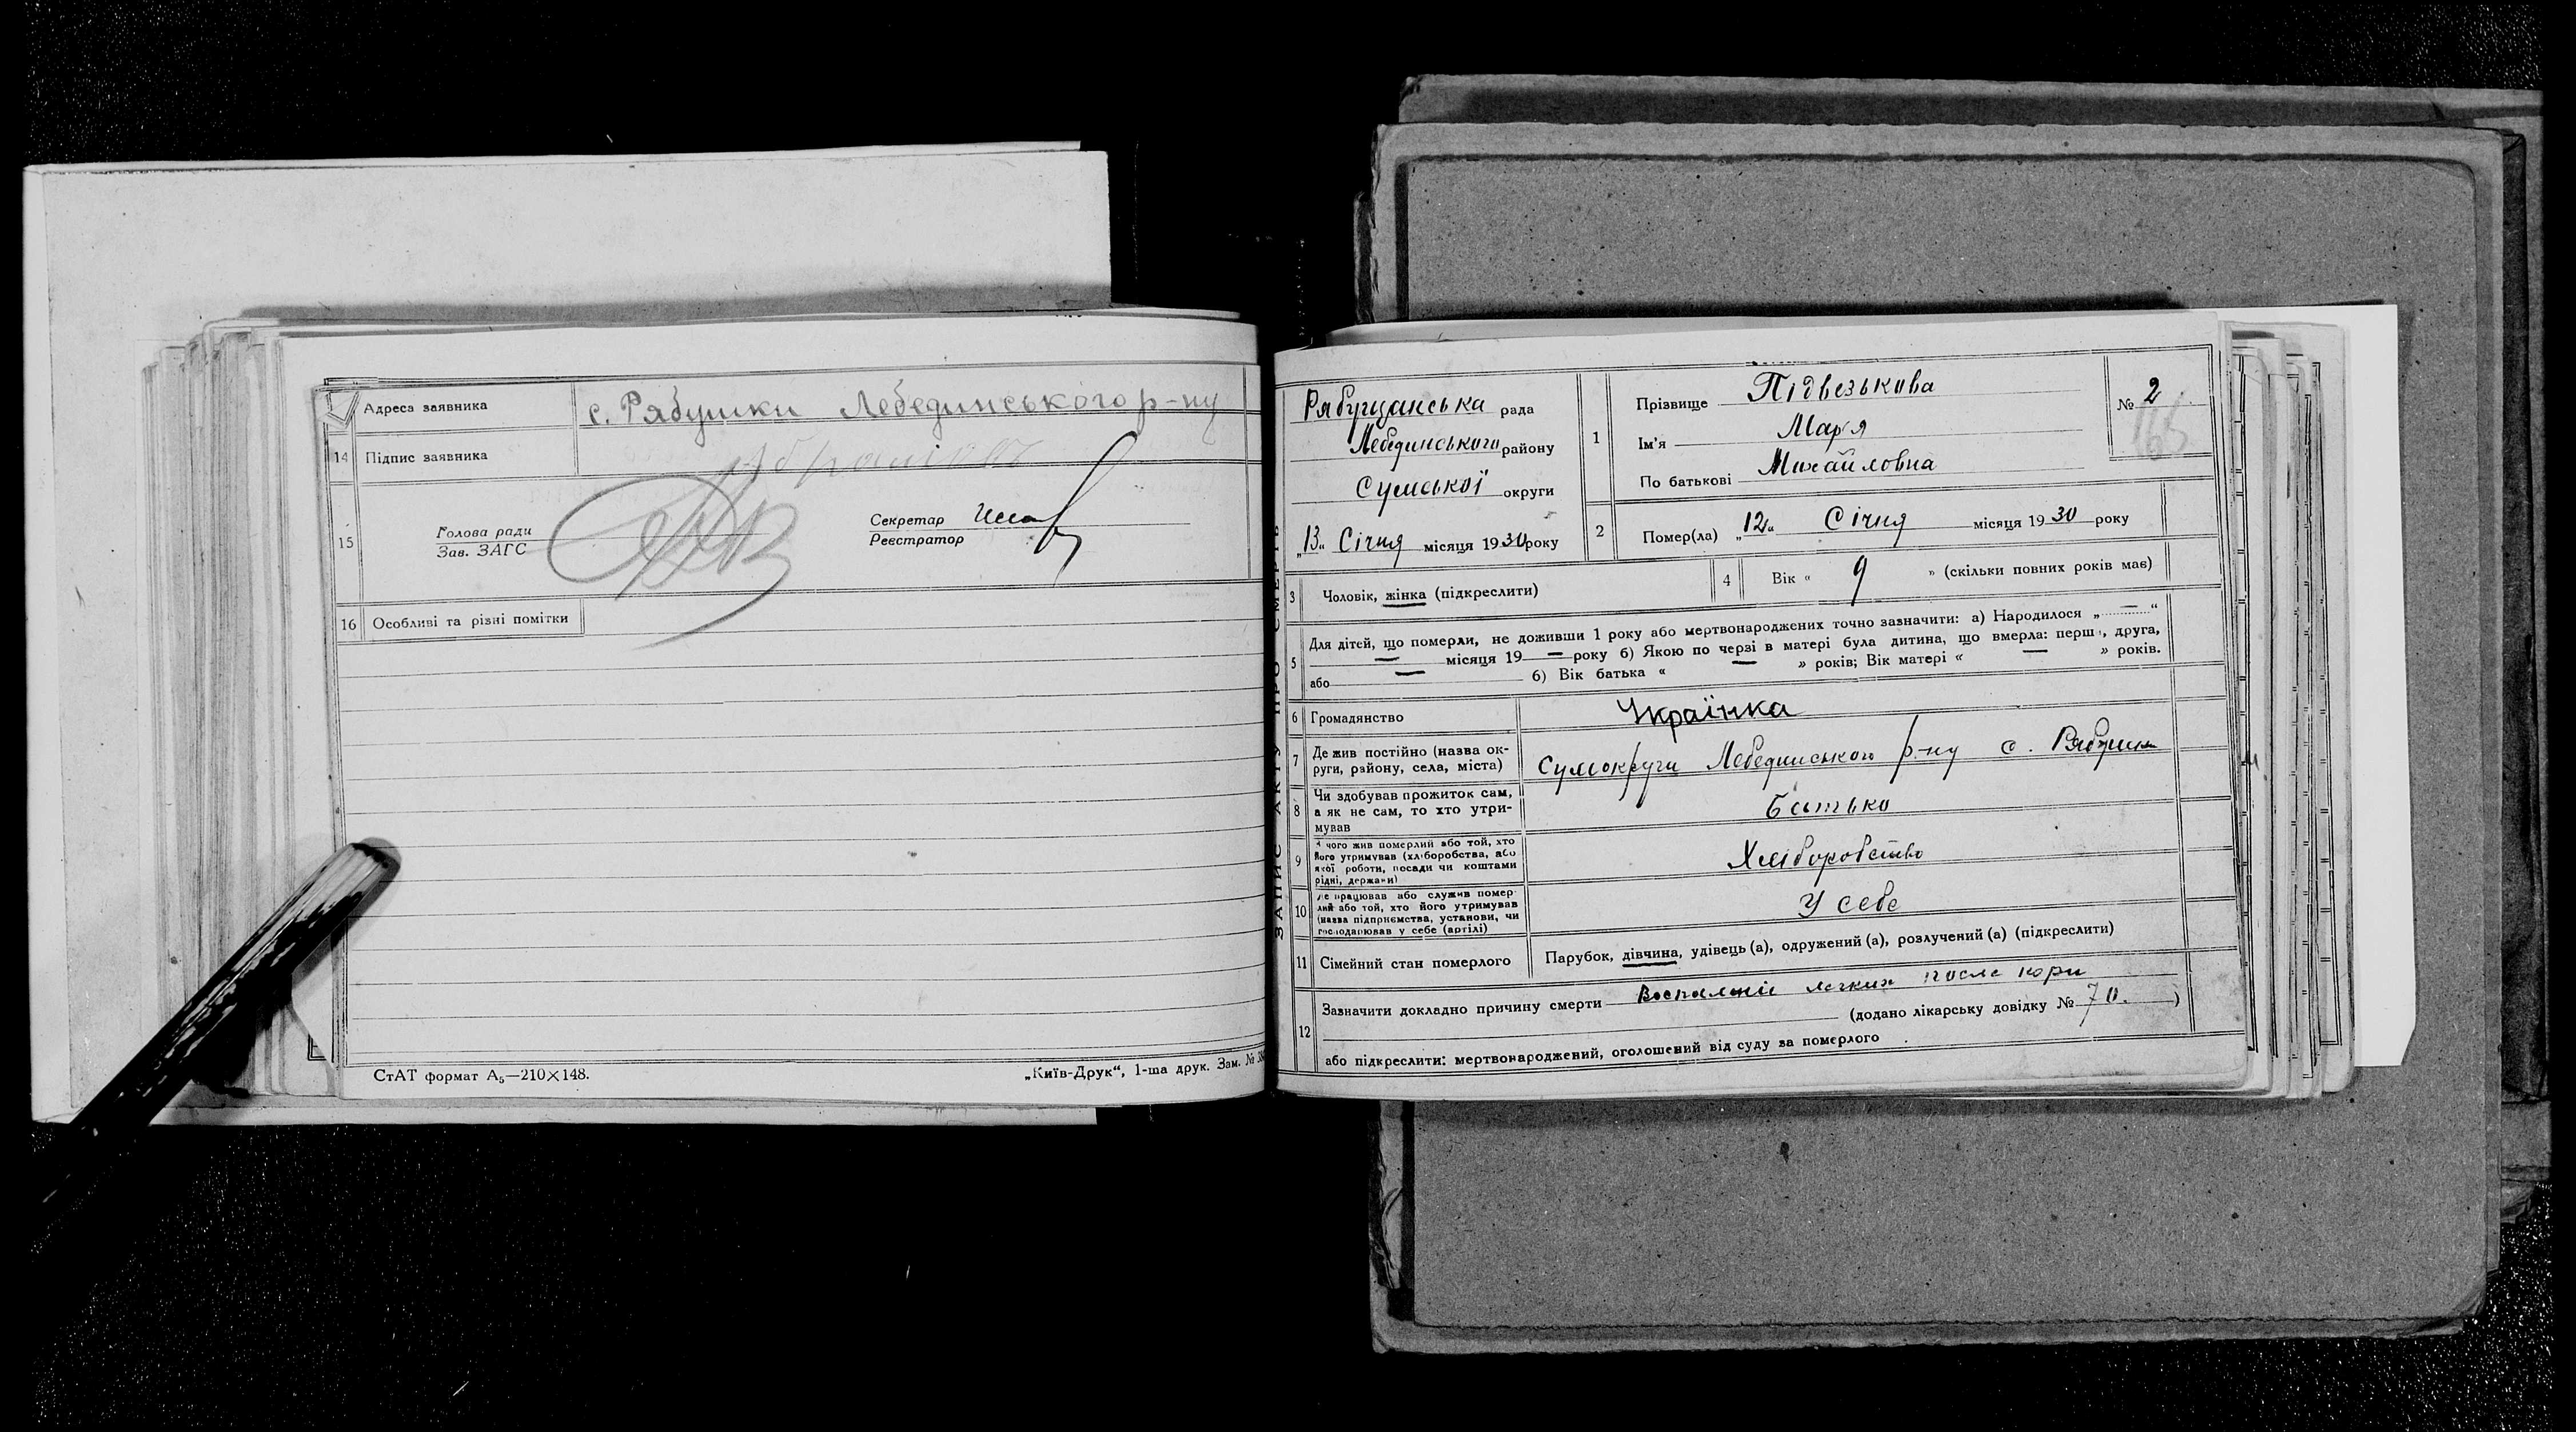 Адреса заявника
с. Рябушки Лебединського р-ну
14 Підпис заявника
15
Голова ради
Зав. ЗАГС
Секретар
Реєстратор
16 Особливі та різні помітки
СтАТ формат А₅—210×148.
„Київ-Друк“, 1-ша друк. Зам. №
ЗАПИС АКТУ ПРО СМЕРТЬ
Рябущанська рада
Лебединського району
Сумської округи
„13“ Січня місяця 1930 року
1
Прізвище Підвезькова
Ім'я Мар'я
По батькові Михайловна
№ 2
2 Помер(ла) „12“ Січня місяця 1930 року
3 Чоловік, жінка (підкреслити)
4 Вік « 9 » (скільки повних років має)
5 Для дітей, що померли, не доживши 1 року або мертвонароджених точно зазначити: а) Народилося „ — “
— місяця 19 — року б) Якою по черзі в матері була дитина, що вмерла: перша, друга,
або — б) Вік батька « — » років; Вік матері « — » років.
6 Громадянство Українка
7 Де жив постійно (назва ок-
руги, району, села, міста)
Сумокруги Лебединського р-ну с. Рябушки
8 Чи здобував прожиток сам,
а як не сам, то хто утри-
мував
Батько
9 З чого жив померлий або той, хто
його утримував (хліборобства, або
якої роботи, посади чи коштами
рідні, держави)
Хліборобство
10 Де працював або служив помер-
лий або той, хто його утримував
(назва підприємства, установи, чи
господарював у себе (артілі)
У себе
11 Сімейний стан померлого
Парубок, дівчина, удівець (а), одружений (а), розлучений (а) (підкреслити)
12 Зазначити докладно причину смерти Воспаленіе легких после кори
(додано лікарську довідку № 70. )
або підкреслити: мертвонароджений, оголошений від суду за померлого